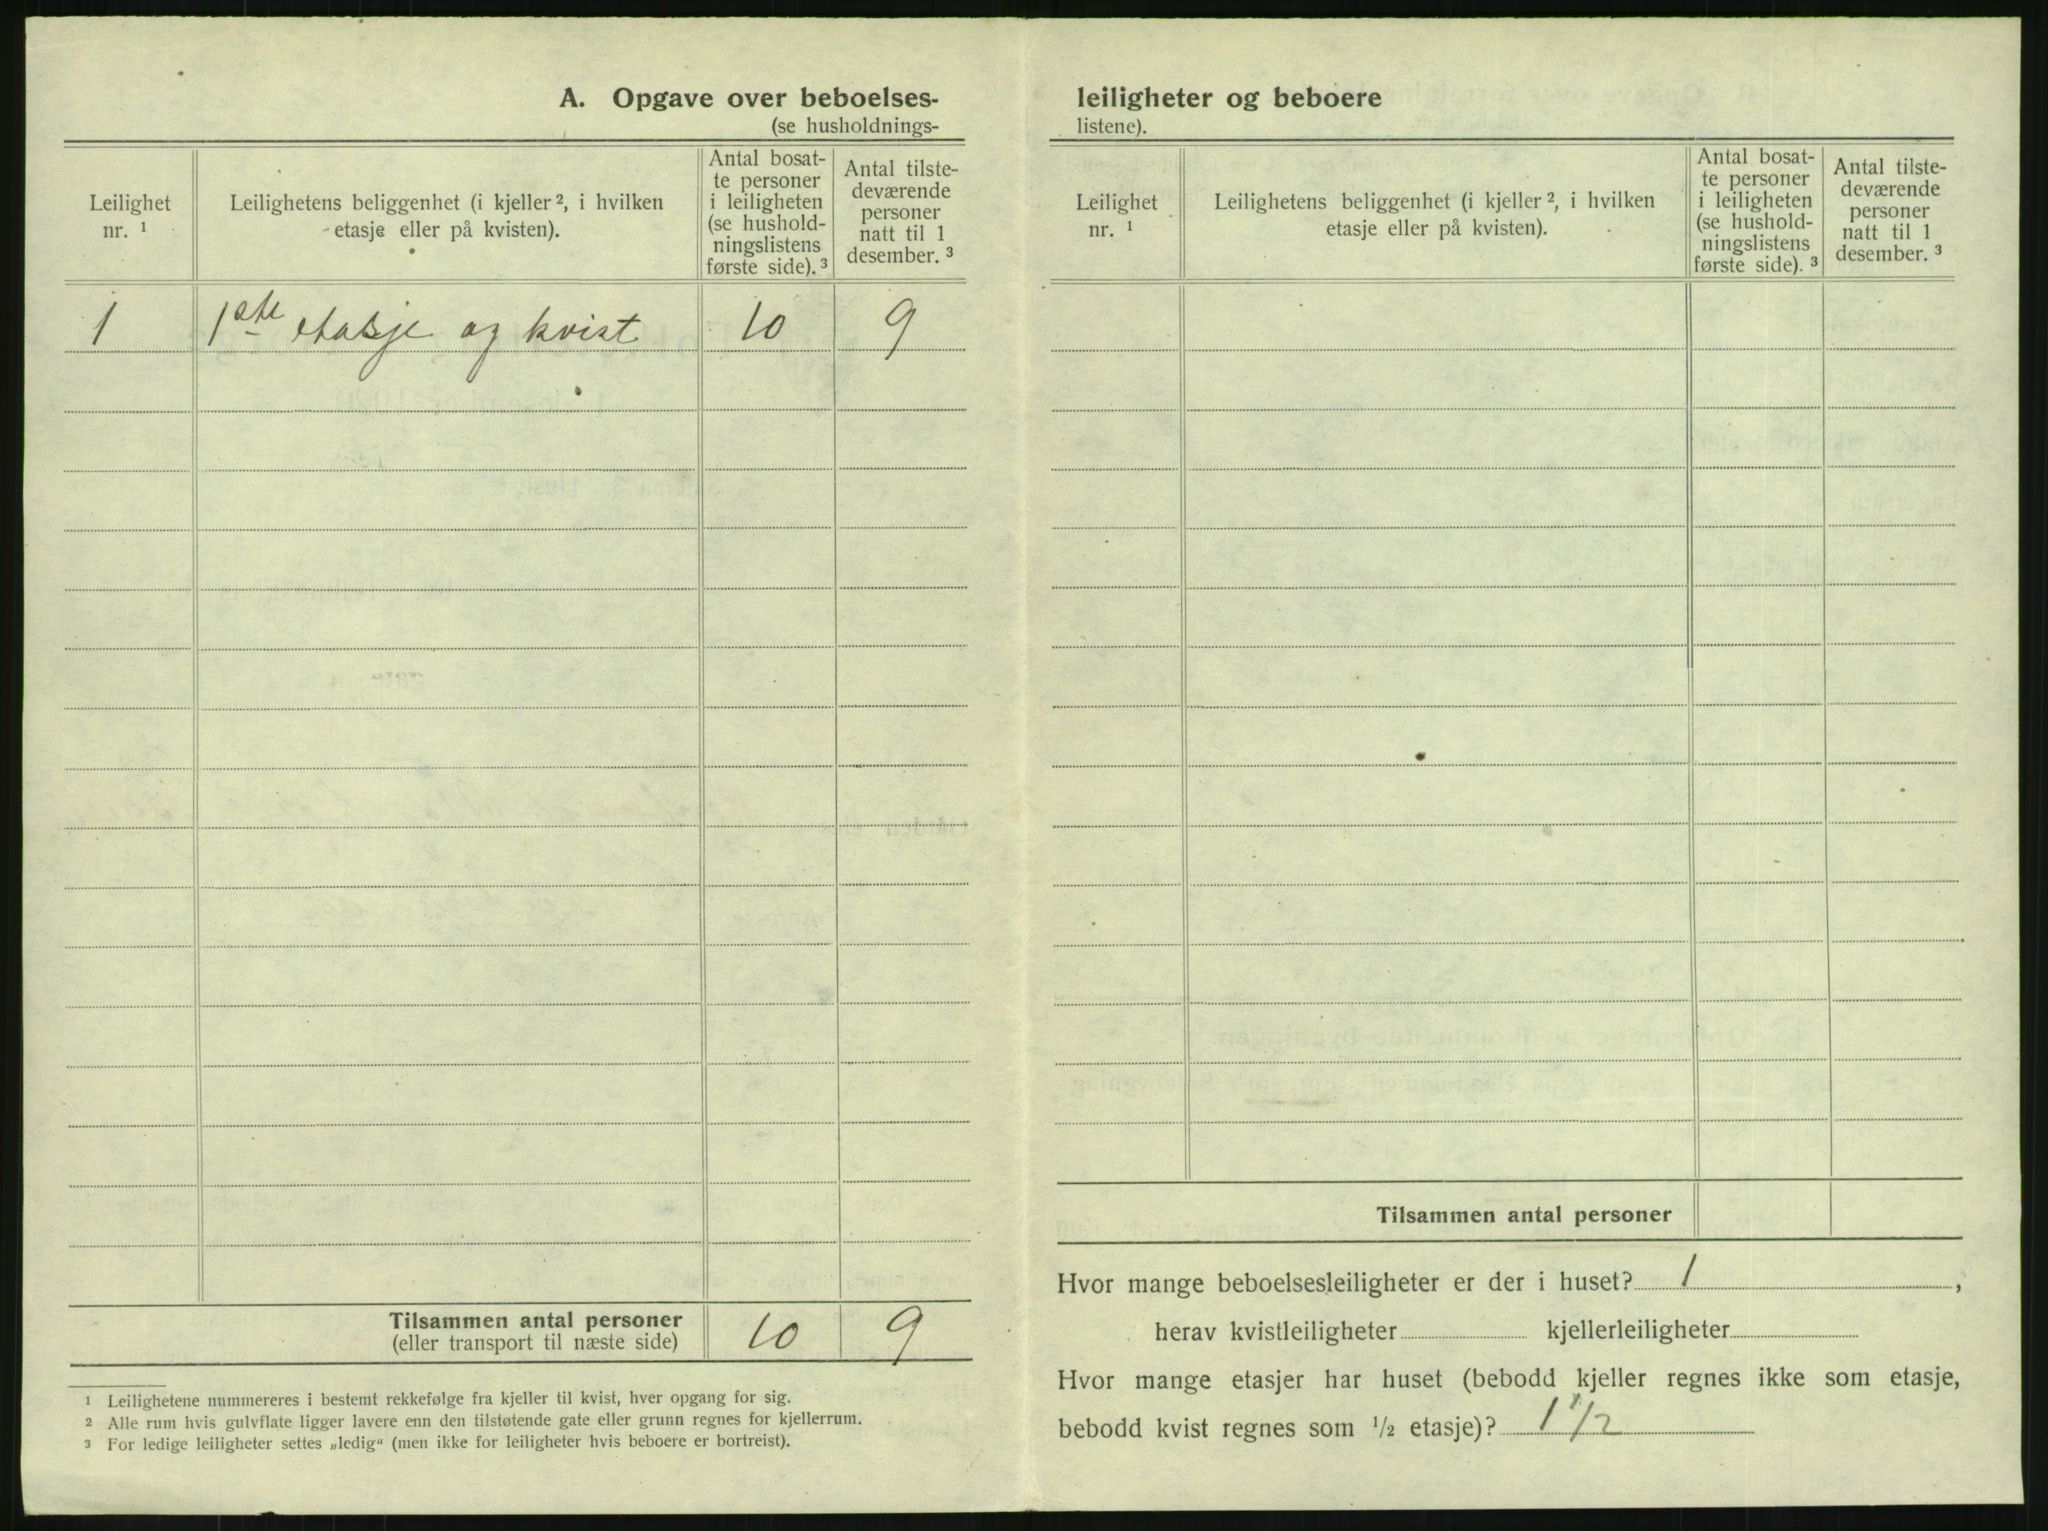 A. Opgave over beboelses-
(se husholdnings-
Leilighet
nr. ¹
Leilighetens beliggenhet (i kjeller ², i hvilken
etasje eller på kvisten).
Antal bosat-
te personer
i leiligheten
(se hushold-
ningslistens
første side). ³
Antal tilste-
deværende
personer
natt til 1
desember. ³
1 1ste etasje og kvist 10 9
Tilsammen antal personer 10 9
(eller transport til næste side)
¹ Leilighetene nummereres i bestemt rekkefølge fra kjeller til kvist, hver opgang for sig.
² Alle rum hvis gulvflate ligger lavere enn den tilstøtende gate eller grunn regnes for kjellerrum.
³ For ledige leiligheter settes „ledig“ (men ikke for leiligheter hvis beboere er bortreist).
leiligheter og beboere
listene).
Leilighet
nr. ¹
Leilighetens beliggenhet (i kjeller ², i hvilken
etasje eller på kvisten).
Antal bosat-
te personer
i leiligheten
(se hushold-
ningslistens
første side). ³
Antal tilste-
deværende
personer
natt til 1
desember. ³
Tilsammen antal personer
Hvor mange beboelsesleiligheter er der i huset? 1 ,
herav kvistleiligheter kjellerleiligheter
Hvor mange etasjer har huset (bebodd kjeller regnes ikke som etasje,
bebodd kvist regnes som ½ etasje)? 1 ½